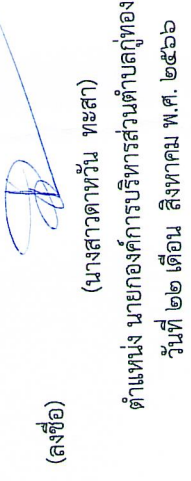 (ลงชื่อ)
(นางสาวดาหวัน ทะสา)
ตำแหน่ง นายกองค์การบริหารส่วนตำบลกู่ทอง
วันที่ ๒๒ เดือน สิงหาคม พ.ศ. ๒๕๖๖